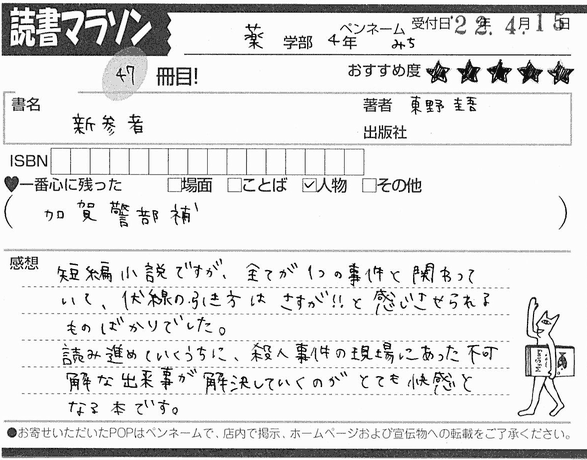 読書マラソン
薬 学部 4年 ペンネーム みち
受付日'22年 4.月15日
47 冊目!
おすすめ度 ★★★★★
書名 新参者
著者 東野圭吾
出版社
ISBN
♥一番心に残った □場面 □ことば ☑人物 □その他
( 加賀警部補 )
感想
短編小説ですが、全てが1つの事件と関わって
いて、伏線の引き方はさすが!!と感じさせられる
ものばかりでした。
読み進めていくうちに、殺人事件の現場にあった不可
解な出来事が解決していくのがとても快感と
なる本です。
●お寄せいただいたPOPはペンネームで、店内で掲示、ホームページおよび宣伝物への転載をご了承ください。